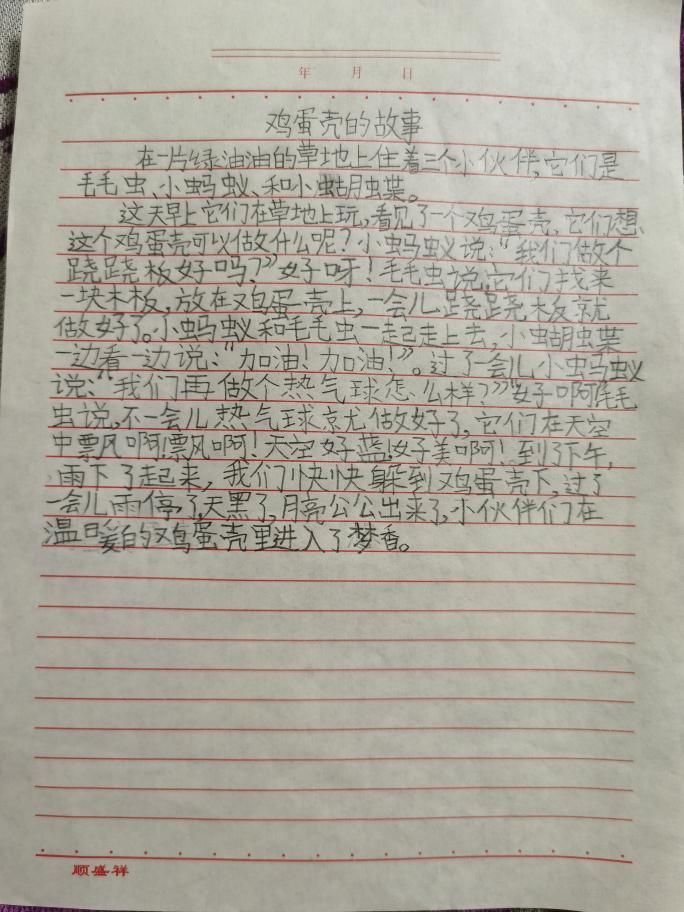 年 月 日
鸡蛋壳的故事
在一片绿油油的草地上住着三个小伙伴,它们是
毛毛虫、小蚂蚁、和小蝴蝶。
这天早上它们在草地上玩,看见了一个鸡蛋壳,它们想、
这个鸡蛋壳可以做什么呢?小蚂蚁说:“我们做个
跷跷板好吗?”好呀!毛毛虫说,它们找来
一块木板,放在鸡蛋壳上,一会儿跷跷板就
做好了。小蚂蚁和毛毛虫一起走上去,小蝴蝶
一边看一边说:“加油!加油!”。过了一会儿,小蚂蚁
说:“我们再做个热气球怎么样?”“好啊”毛毛
虫说,不一会儿热气球就做好了,它们在天空
中飘啊!飘啊!天空好蓝!好美啊!到了下午,
雨下了起来,我们快快躲到鸡蛋壳下,过了
一会儿雨停了,天黑了,月亮公公出来了,小伙伴们在
温暖的鸡蛋壳里进入了梦香。
顺盛祥